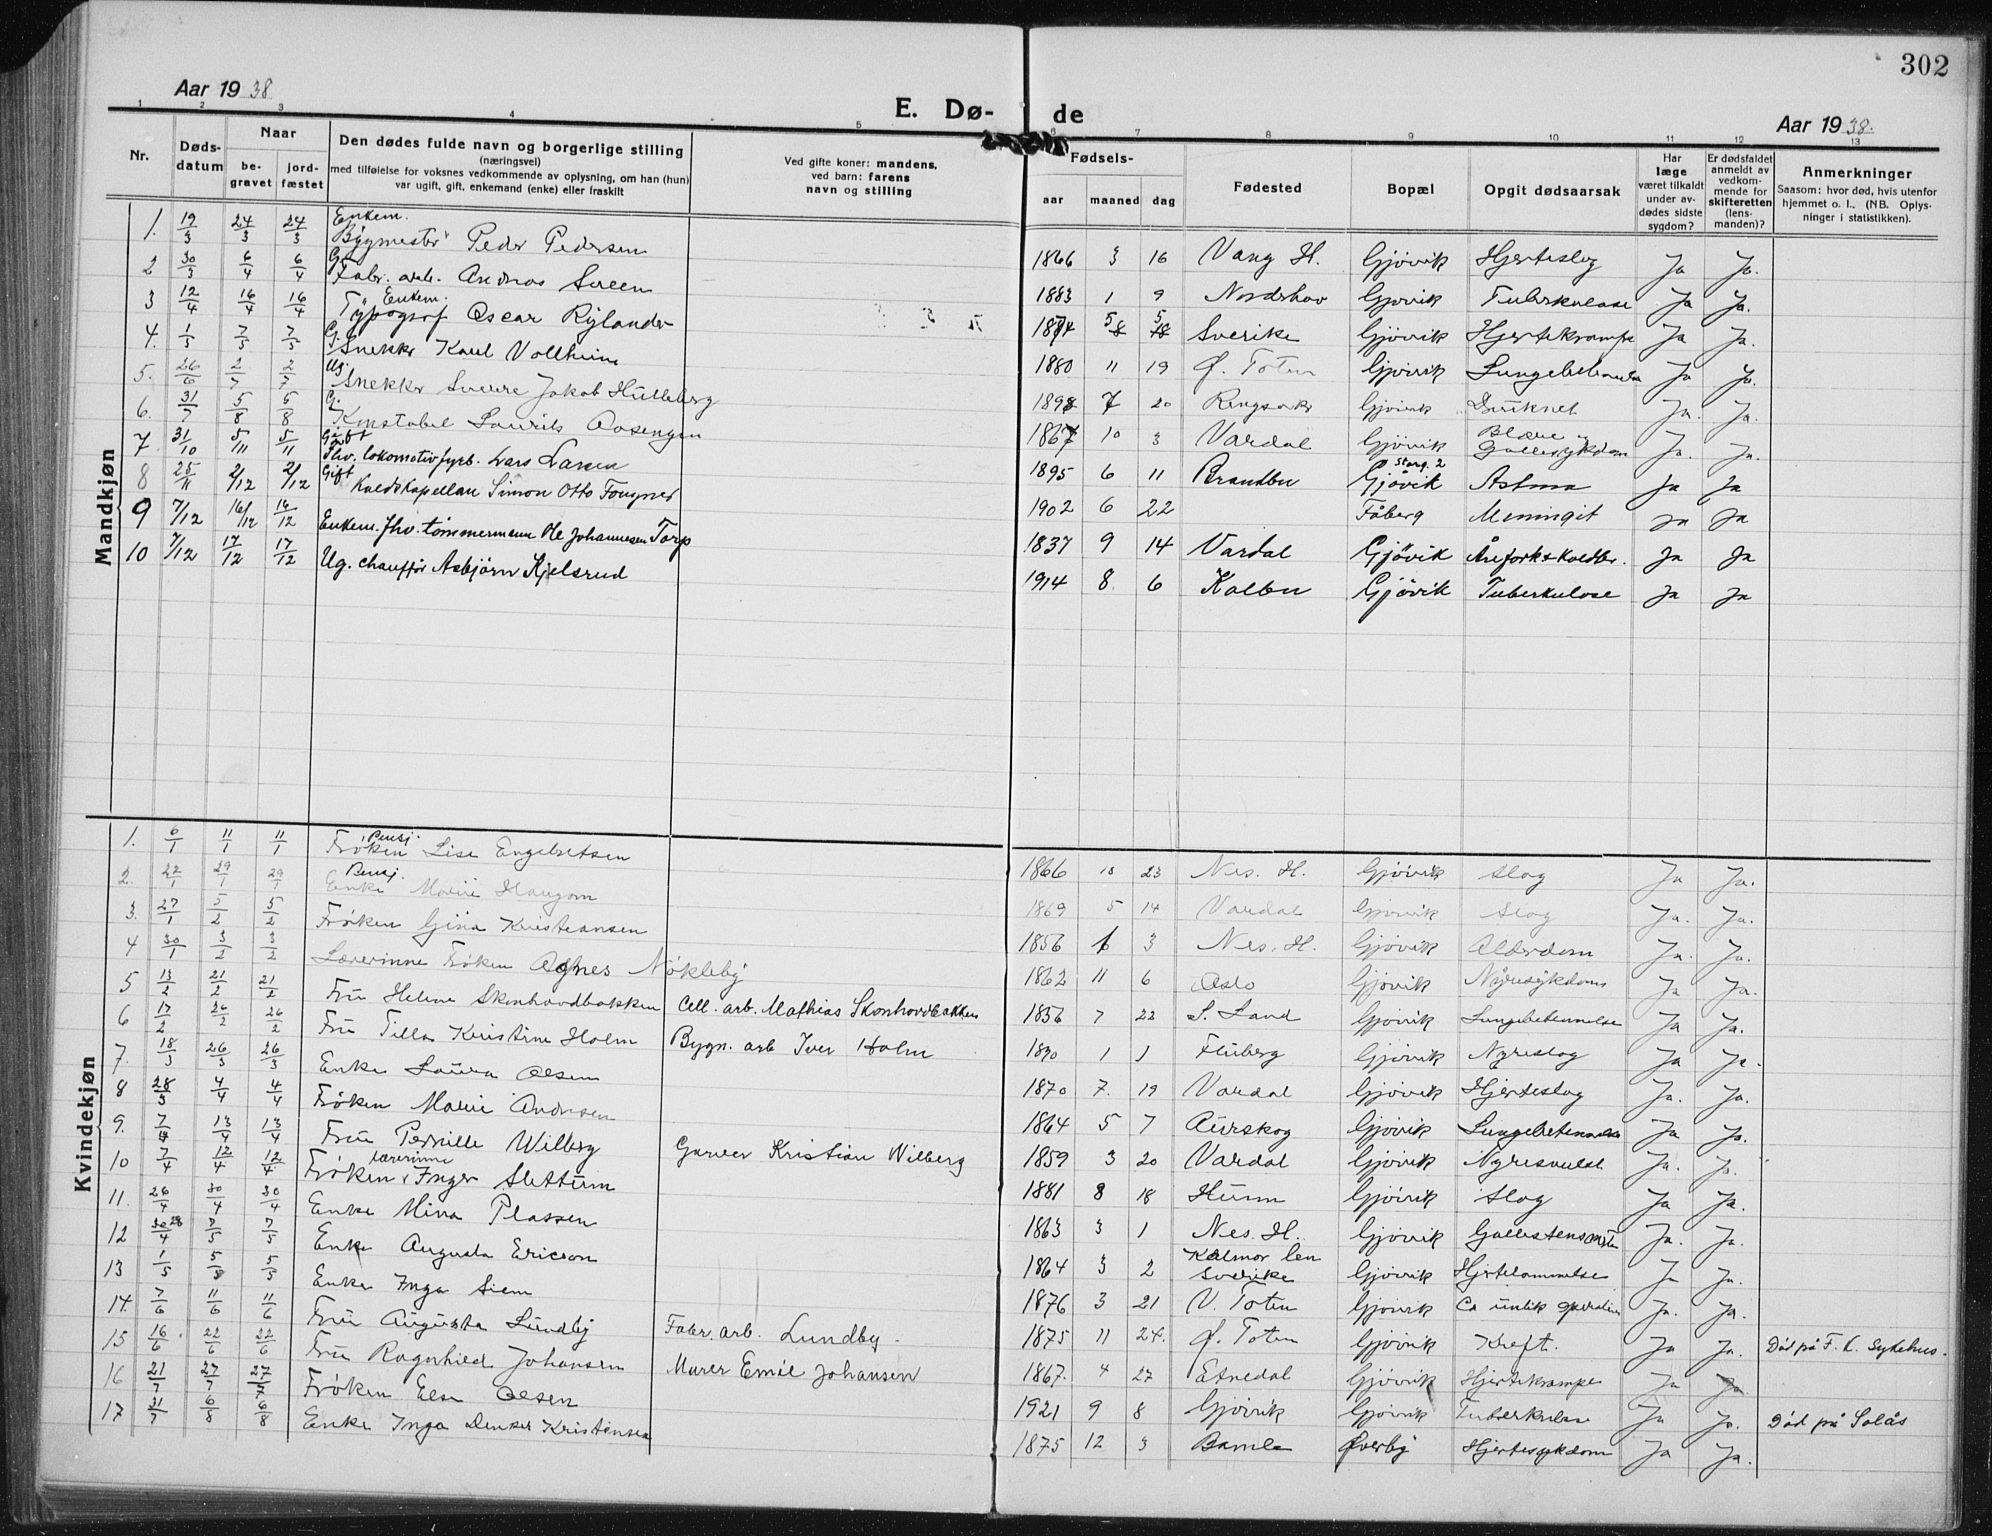 302
Aar 1938
E. Dø- de
Aar 1938.
1 2 3 4 5 6 7 8 9 10 11 12 13
Nr.
Døds-
datum
Naar
be-
gravet
jord-
fæstet
Den dødes fulde navn og borgerlige stilling
(næringsvei)
med tilføielse for voksnes vedkommende av oplysning, om han (hun)
var ugift, gift, enkemand (enke) eller fraskilt
Ved gifte koner: mandens,
ved barn: farens
navn og stilling
Fødsels-
aar
maaned
dag
Fødested
Bopæl
Opgit dødsaarsak
Har
læge
været tilkaldt
under av-
dødes sidste
sygdom?
Er dødsfaldet
anmeldt av
vedkom-
mende for
skifteretten
(lens-
manden)?
Anmerkninger
Saasom: hvor død, hvis utenfor
hjemmet o. l., (NB. Oplys-
ninger i statistikken).
Mandkjøn
1. 19/3 24/3 24/3 Enkem. Bygmester Peder Pedersen 1866 3 16 Vang H. Gjövik Hjerteslag Ja Ja.
2 30/3 6/4 6/4 G. Fabr. arb. Andreas Sveen 1883 1 9 Nordehov Gjövik Tuberkulose Ja Ja.
3 12/4 16/4 16/4 Enkem. Typograf Oscar Rylander 1874 5 5 Sverike Gjövik Hjertekrampe Ja Ja.
4. 1/5 7/5 7/5 G. Snekker Karl Vollheim 1880 11 19 Ø. Toten Gjövik Lungebetennelse Ja Ja.
5. 26/6 2/7 2/7 Ug. Snekker Sverre Jakob Hulleberg 1898 7 20 Ringsaker Gjövik Druknet Ja. Ja.
6. 31/7 5/8 5/8 G. Konstabel Laurits Aasengen 1867 10 3 Vardal Gjövik Blære Gallesykdom Ja. Ja.
7. 31/10 5/11 5/11 Gift Fhv. lokomotivfyrb. Lars Larsen 1895 6 11 Brandbu Storg. 2 Gjövik Astma Ja Ja
8 25/11 2/12 2/12 Gift Kaldskapellan Simon Otto Fougner 1902 6 22 Fåberg Meningit Ja Ja
9 7/12 16/12 16/12 Enkem. fhv. tömmermann Ole Johannesen Torp 1837 9 14 Vardal Gjövik Årefork & koldbr. Ja Ja
10 7/12 17/12 17/12 Ug. chauffør Asbjörn Kjelsrud 1914 8. 6 Kolbu Gjövik Tuberkulose Ja Ja
Kvindekjøn
1. 6/1 11/1 11/1 Pensj. Frøken Lise Engebretsen 1866 10 23 Nes. H. Gjövik Slag Ja Ja.
2. 22/1 29/1 29/1 Pensj. Enke Marie Haugom 1869 5 14 Vardal Gjövik Slag Ja. Ja.
3. 27/1 5/2 5/2 Frøken Gina Kristiansen 1856 6 3 Nes. H. Gjövik Alderdom Ja. Ja.
4 30/1 3/2 3/2 Lærerinne Frøken Agnes Nökleby 1862 11 6 Oslo Gjövik Nyresykdom Ja Ja.
5 13/2 21/2 21/2 Fru Helene Skonhovdbakken Cell. arb. Mathias Skonhovdbakken 1856 7 22 S. Land Gjövik Lungebetennelse Ja Ja.
6 17/2 26/2 26/2 Fru Tilla Kristine Holm Bygn. arb Iver Holm 1 1 Fluberg Gjövik Nyreslag Ja Ja.
7. 18/3 26/3 26/3 Enke Laura Olsen 1870 7. 19 Vardal Gjövik Hjerteslag Ja. Ja.
8 28/3 4/4 4/4 Frøken Marie Andresen 1864 5 7 Aurskog Gjövik Lungebetennelse Ja Ja.
9. 7/4 13/4 13/4 Fru Pernille Wilberg Garver Kristian Wilberg 1859 3 20 Vardal Gjövik Nyresvulst Ja. Ja.
10 7/4 12/4 12/4 lærerinne Frøken Inger Slettum 1881 8 18 Hunn Gjövik Slag Ja Ja.
11. 26/4 30/4 30/4 Enke Mina Plassen 1863 3 1 Nes. H. Gjövik Ja. Ja.
12 28/4 7/5 7/5 Enke Augusta Ericson 1864 3 2 Kalmar len Sverike Gjövik Hjertelammelse Ja Ja.
13 1/5 5/8 5/5 Enke Inga Siem 1876 3 21 V. Toten Gjövik Ja. Ja.
14. 7/6 11/6 11/6 Fru Augusta Lundby Fabr. arb. Lundby. 1875 11 24. Ø. Toten Gjövik Kreft. Ja Ja. Död på F. L. Sykehus.
15 16/6 22/6 22/6 Fru Ragnhild Johansen Murer Emil Johansen 1867. 4 27 Etnedal Gjövik Hjertekrampe Ja Ja.
16 21/7 27/7 27/7 Frøken Else Olsen 1921 9 8 Gjövik Gjövik Tuberkulose Ja Ja. Död på Solås
17 31/7 6/8 6/8 Enke Inga Kristensen 1875 12 3 Bamle Øverby Hjertesykdom Ja Ja.